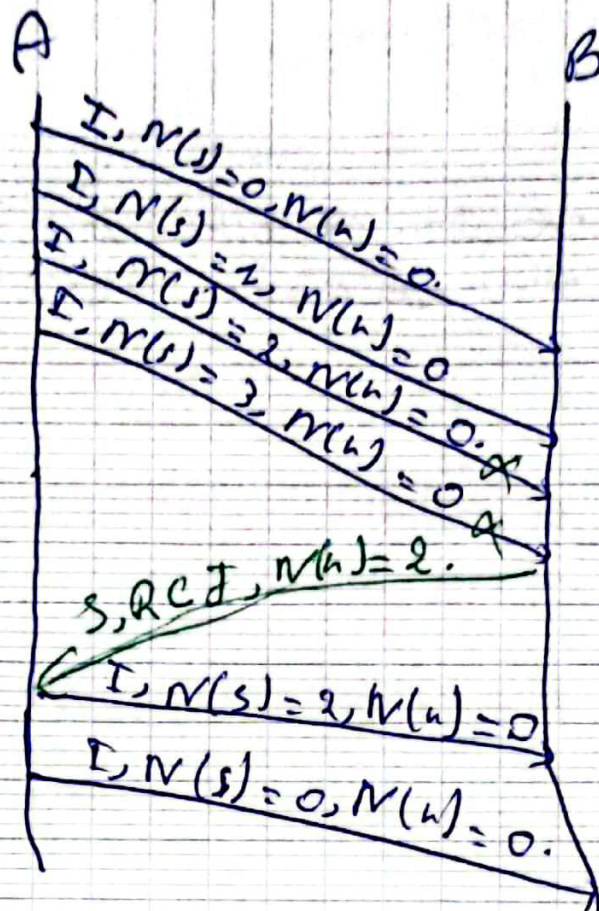 A
B
I, N(s)=0, N(r)=0.
I, N(s)=1, N(r)=0
I, N(s)=2, N(r)=0.
I, N(s)=3, N(r)=0
S, REJ, N(r)=2.
I, N(s)=2, N(r)=0
I, N(s)=0, N(r)=0.